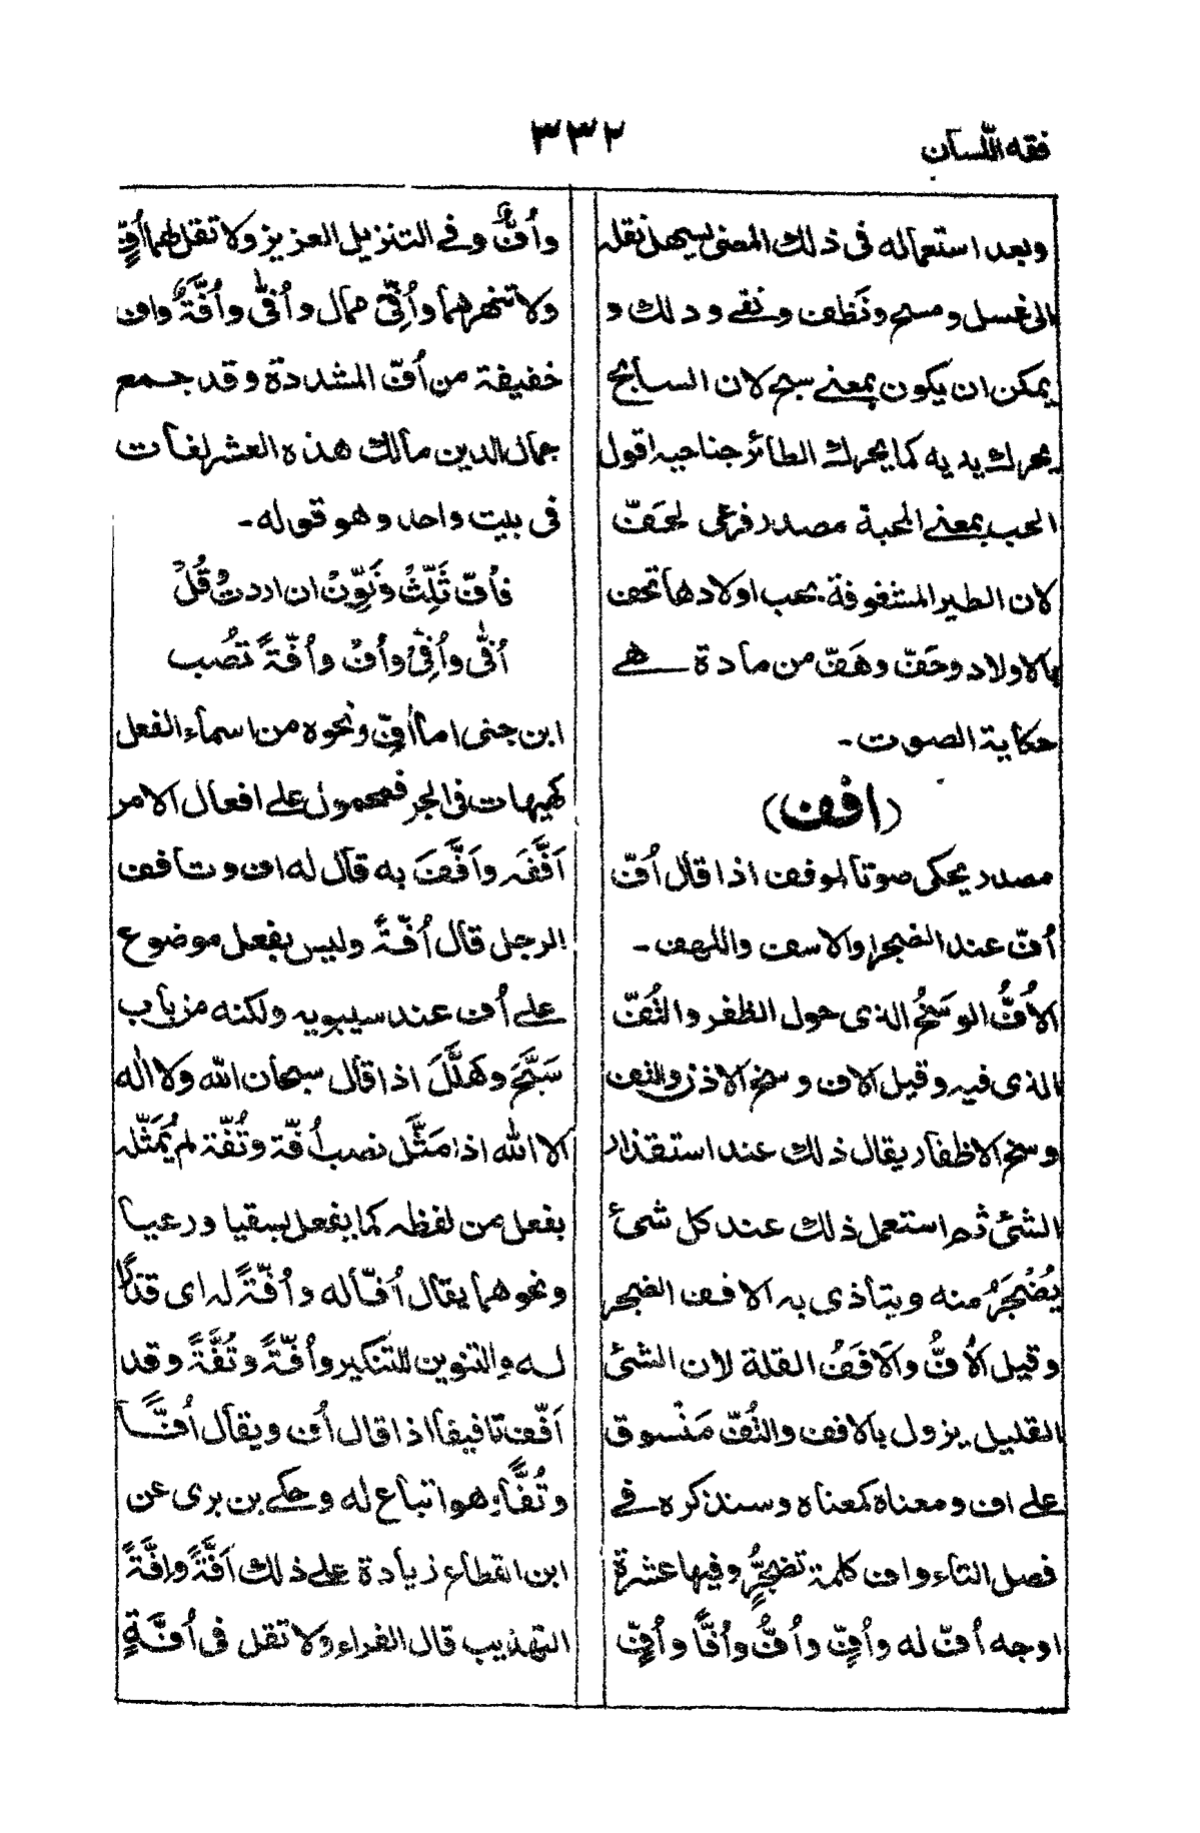 فقه اللسان
٣٣٢
وبعد استعماله فى ذلك المعنى يسهل نقله
الى غسل ومسح ونَظف ونقے ودلك و
يمكن ان يكون بمعنے سبح لان السابح
يحرك يديه كما يحرك الطائر جناحيه اقول
الحب بمعنے المحبة مصدر فرعى لحَفّ
لان الطير المشغوفة بحب اولادها تحف
بالاولاد وحَفّ وهَفّ من مادة هے
حكاية الصوت ۔
(افف)
مصدر يحكى صوتا لموفف اذا قال اُفّ
اُفّ عند الضجر والاسف واللهف ۔
الاُفُّ الوسَخُ الذى حول الظفر والتُفّ
الذى فيه وقيل الاف وسخ الاذن والتف
وسخ الاظفار يقال ذلك عند استقذار
الشئ ثم استعمل ذلك عند كل شئ
يُضْجَرُ منه ويتأذى به الافف الضجر
وقيل الاُفُّ والاَفَفُ القلة لان الشئ
القليل يزول بالافف والتُفّ مَنْسوق
علے اف ومعناه كمعناه وسنذكره فے
فصل التاء واف كلمة تضجُّرٍ وفيها عشرة
اوجه اُفّ له واُفِّ واُفُّ واُفًّا واُفٍّ
واُفٌّ وفے التنزيل العزيز ولا تقل لهما اُفٍّ
ولا تنهرهما واُفِّىْ ممال واُفّٰى واُفَّةٌ واف
خفيفة من اُفّ المشددة وقد جمع
جمال الدين مالك هذه العشر لغات
فى بيت واحد وهو قوله ۔
فاُفّ ثَلِّثْ ونَوِّنْ ان اردت وقُلْ
اُفّٰى واُفِّىْ واُفْ واُفّةً تصُب
ابن جنى اما اُفّ ونحوه من اسماء الفعل
كهيهات فى الجر فمحمول علے افعال الامر
اَفَّفَه واَفَّفَ به قال له اف وتافف
الرجل قال اُفّةً وليس بفعل موضوع
علے اُف عند سيبويه ولكنه من باب
سَبَّحَ وهَلَّلَ اذا قال سبحان الله ولا اله
الا الله اذا مَثَّل نصب اُفّة وتُفّة لم يُمَثّله
بفعل من لفظه كما يفعل بسقيا ورعيا
ونحوهما يقال اُفّا له واُفّةً له اى قذرا
له والتنوين للتنكير واُفّةً وتُفَّةً وقد
اَفّف تافيفا اذا قال اُف ويقال اُفًّا
وتُفًّا وهو اتباع له وحكے بن برى عن
ابن القطاع زيادة علے ذلك اَفَّةً واِفَّةً
التهذيب قال الفراء ولا تقل فى اُفَّةٍ